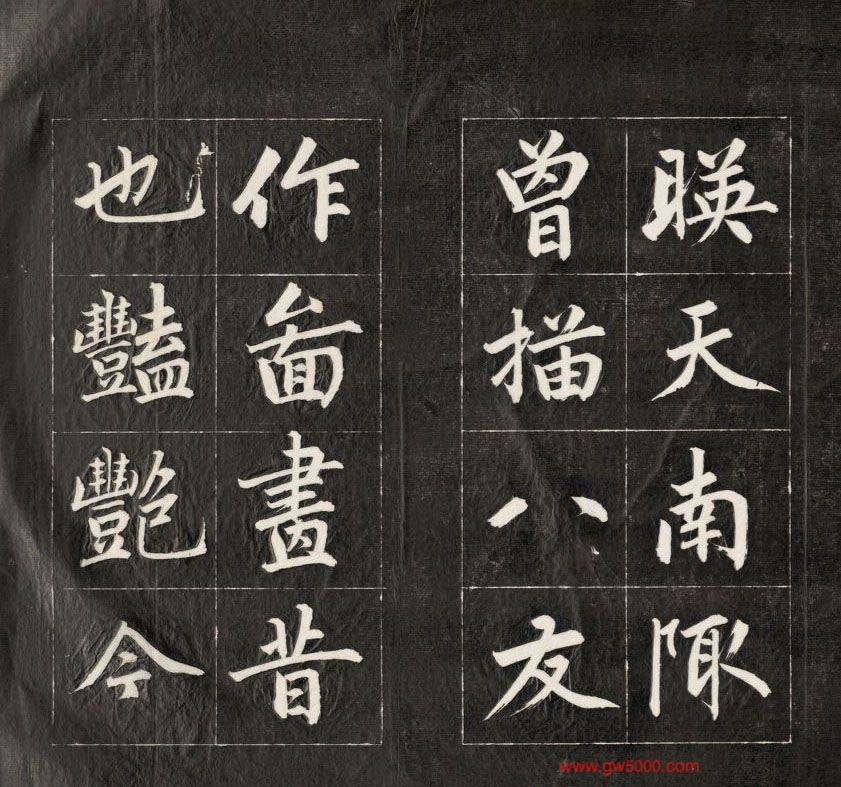 暎天南陬
曾描八友
作畵畫昔
也豔艷今
www.gw5000.com